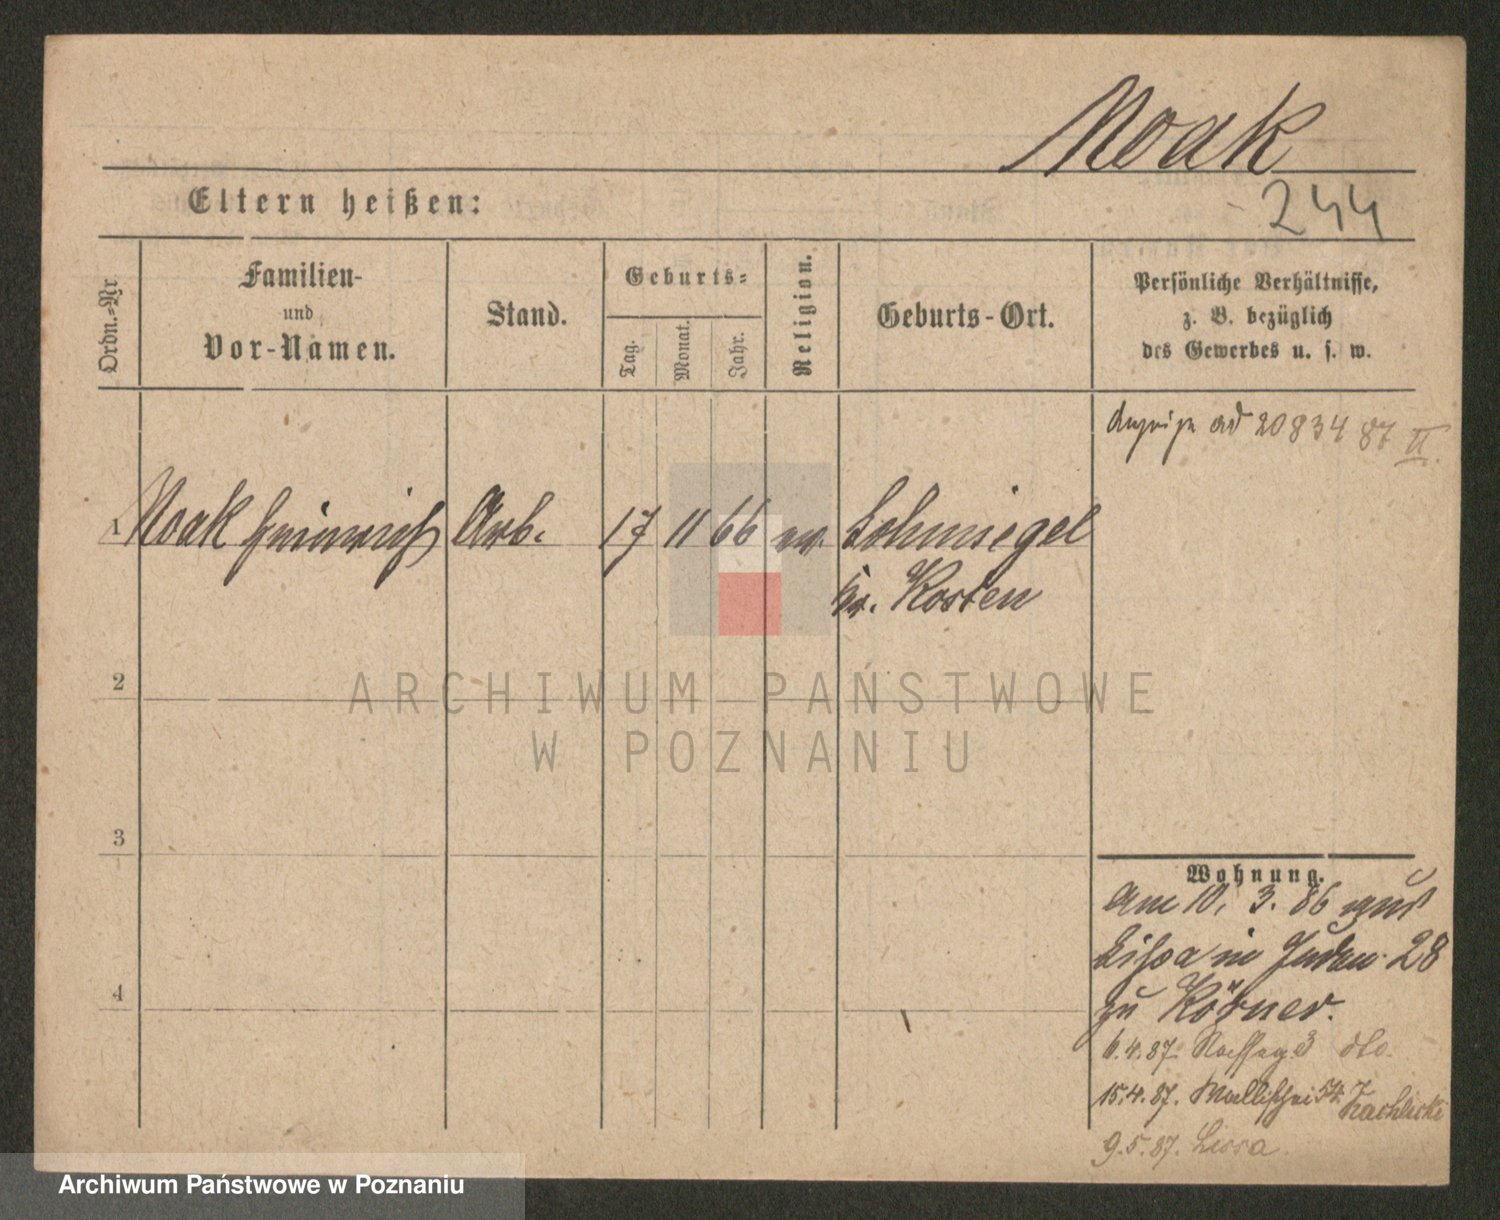 Noak
244
Eltern heißen:
Ordn.-Nr.
Familien-
und
Vor-Namen.
Stand.
Geburts-
Tag.
Monat.
Jahr.
Religion.
Geburts-Ort.
Persönliche Verhältnisse,
z. B. bezüglich
des Gewerbes u. s. w.
Anzeige ad 20834 87 II.
1 Noak Heinrich Arb. 17 11 66 ev. Schmiegel
Kr. Kosten
2
ARCHIWUM PAŃSTWOWE
W POZNANIU
3
Wohnung.
Am 10. 3. 86 aus
Lissa in Juden 28
zu Körner.
6.4.87. dto.
15.4.87. Wallischei
9.5.87. Lissa
4
Archiwum Państwowe w Poznaniu